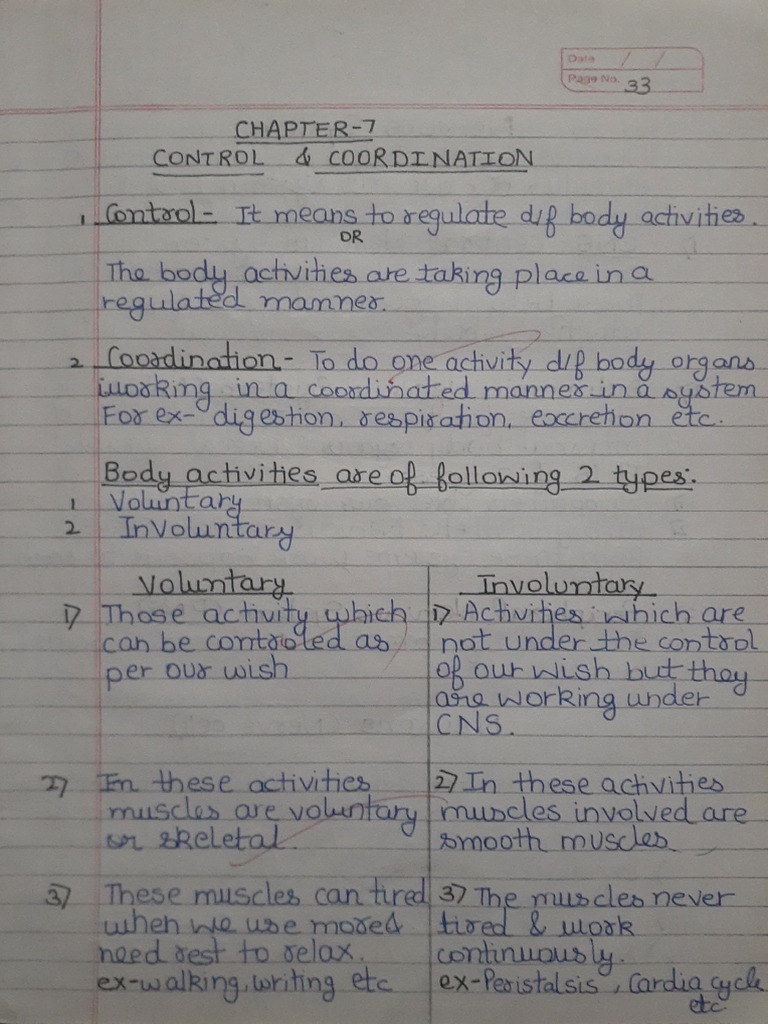 Date / /
Page No. 33
CHAPTER-7
CONTROL & COORDINATION
1 Control- It means to regulate d/f body activities.
OR
The body activities are taking place in a
regulated manner.
2 Coordination- To do one activity d/f body organs
working in a coordinated manner in a system
For ex- digestion, respiration, exccretion etc.
Body activities are of following 2 types:
1 Voluntary
2 InVoluntary
Voluntary
1) Those activity which
can be controled as
per our wish
Involuntary
1) Activities which are
not under the control
of our wish but they
are working under
CNS.
2) In these activities
muscles are voluntary
or skeletal.
2) In these activities
muscles involved are
smooth muscles
3) These muscles can tired
when we use more &
need rest to relax.
ex-walking, writing etc
3) The muscles never
tired & work
continuously.
ex-Peristalsis, Cardia cycle
etc